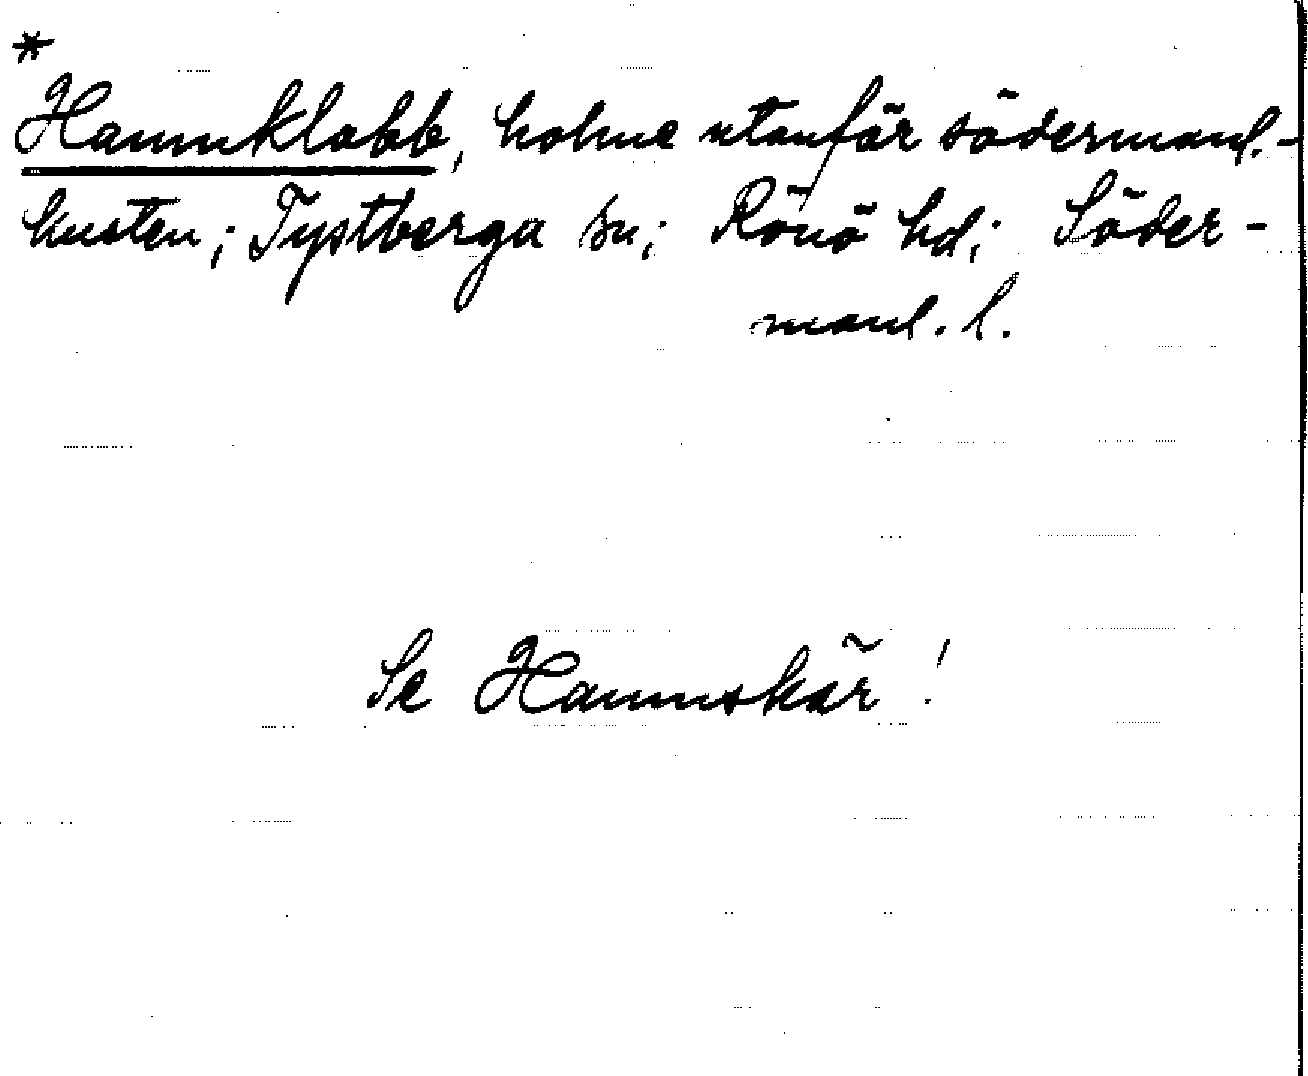 *
Hamnklobb, holme utanför södermanl.-
kusten; Tystberga sn; Rönö hd; Söder-
manl. l.
Se Hamnskär!